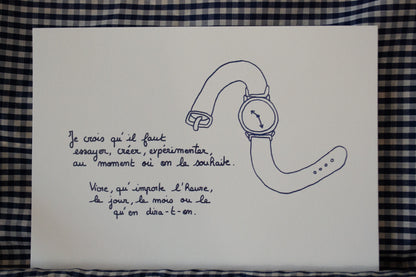 Je crois qu'il faut
essayer, créer, expérimenter,
au moment où on le souhaite.
Vivre, qu'importe l'heure,
le jour, le mois ou le
qu'en dira-t-on.